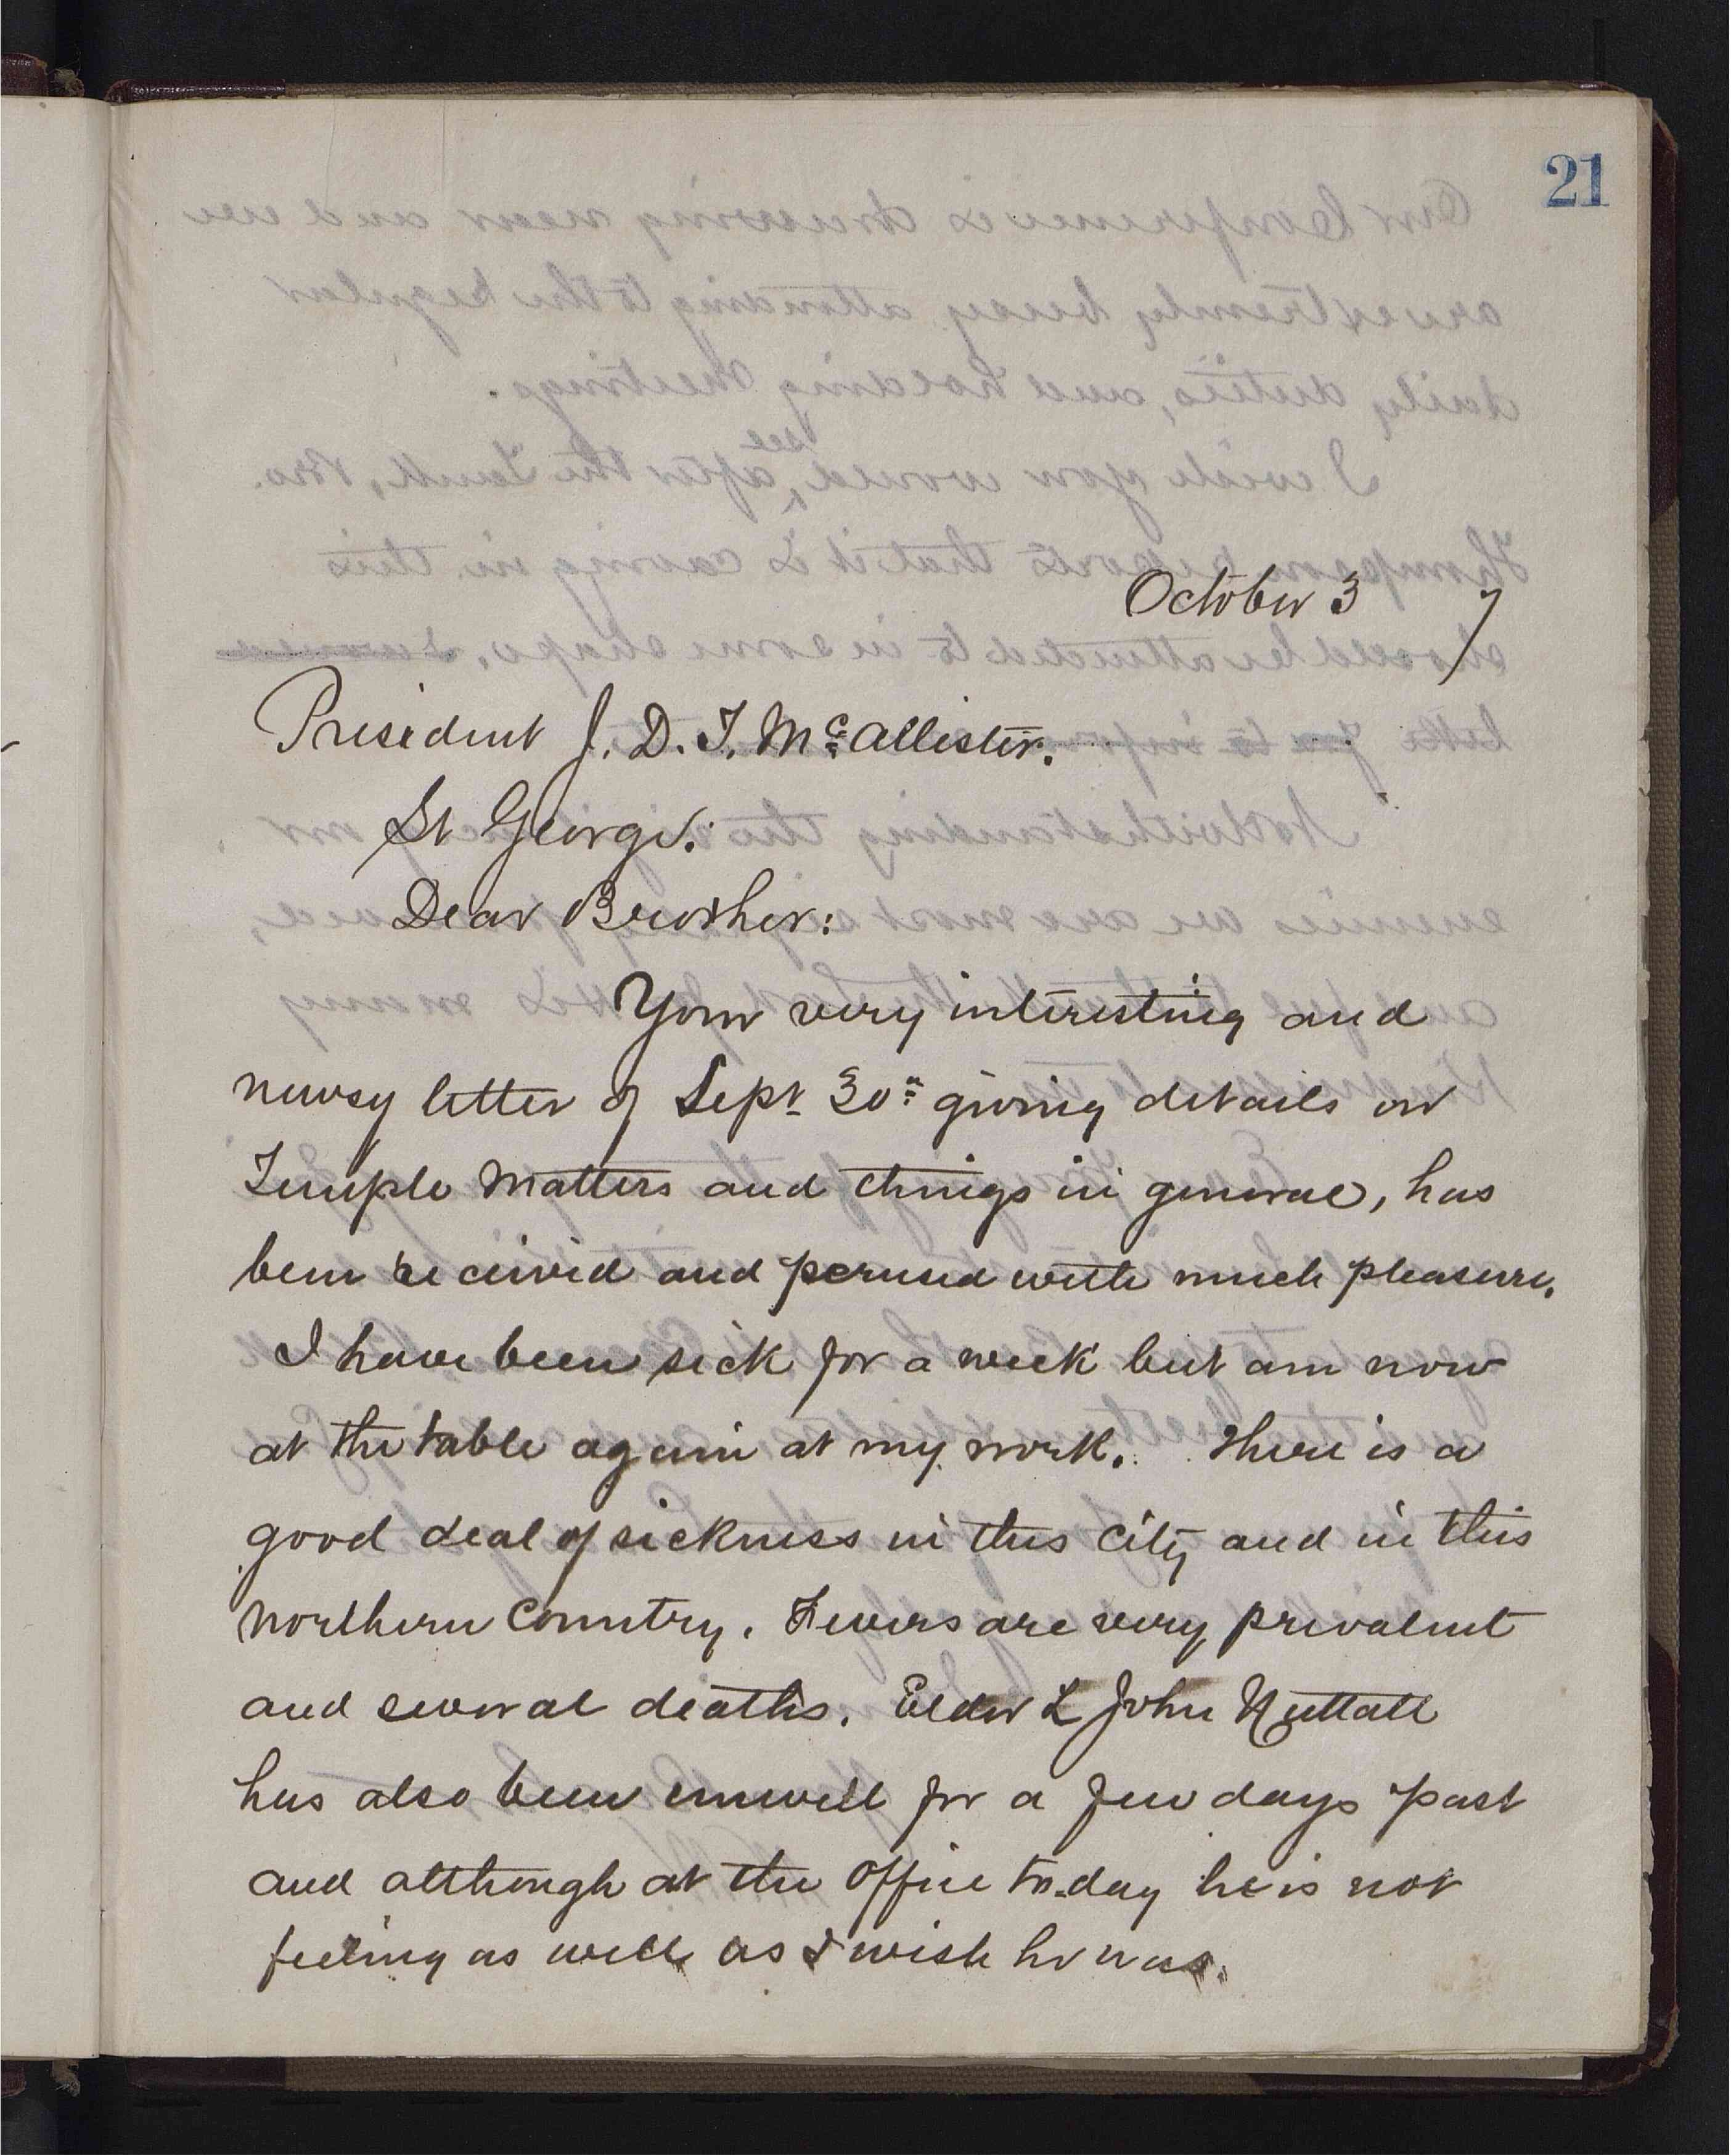 21
October 3 7
President J. D. T. McAllister.
St George.
Dear Brother:
Your very interesting and
newsy letter of Sept 30" giving details on
Temple Matters and things in general, has
been received and perused with much pleasure.
I have been sick for a week but am now
at the table again at my work. There is a
good deal of sickness in this City and in this
Northern Country. Fevers are very prevalent
and several deaths. Elder L John Nuttall
has also been unwell for a few days past
and although at the Office to-day he is not
feeling as well as I wish he was.